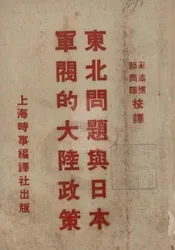 東北問題與日本
軍閥的大陸政策
校譯
上海時事編譯社出版